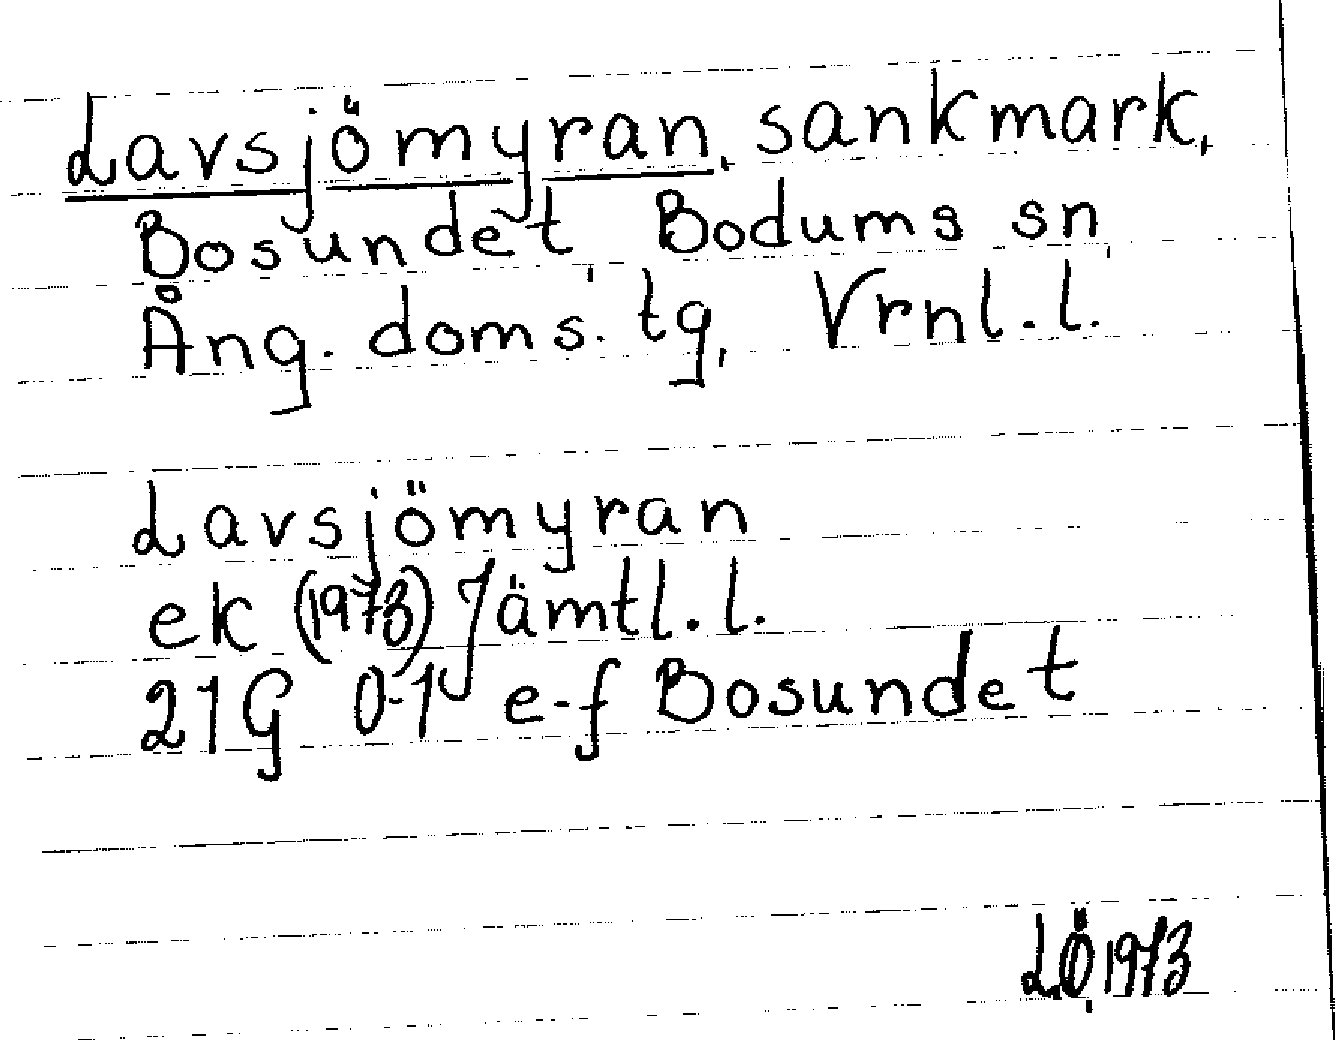 Lavsjömyran, sankmark,
Bosundet, Bodums sn,
Ång. doms. tg, Vrnl. l.
Lavsjömyran
ek (1973) Jämtl. l.
21G 0-1 e-f Bosundet
L.Ö, 1973